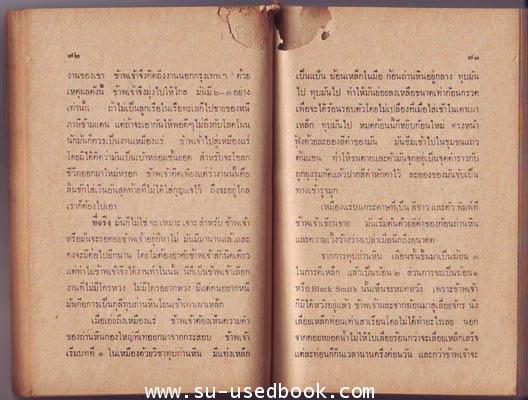 ๗๒
งานของเขา ข้าพเจ้าจึงคิดถึงงานนอกกรุงเทพฯ ด้วย
เหตุผลดังนี้ ข้าพเจ้าจึงมุ่งไปให้ไกล มันมี ๒-๓ อย่าง
เท่านั้น ถ้าไม่เป็นลูกเรือในเรือทะเลก็ไปขายของหนี
ภาษีข้ามแดน แต่ถ้าจะเอากันให้พอดีๆไม่ถึงกับโลดโผน
นักมันก็ควรเป็นงานเหมืองแร่ ข้าพเจ้าไปสู่เหมืองแร่
โดยมิได้คิดว่ามันเป็นเบาหลอมขั้นยอด สำหรับจะโขลก
ชีวิตออกมาใหม่หรอก ข้าพเจ้าคิดเพียงแต่ว่างานนั้นคือ
ลิ้นชักใส่เงินอันสุดท้ายที่ไม่ได้ใส่กุญแจไว้ ถึงจะอยู่ไกล
เราก็ต้องไปเอา
ที่จริง มันก็ไม่ใช่ จะ เหมาะ เจาะ สำหรับ ข้าพเจ้า
หรือมันจะรอคอยข้าพเจ้าอยู่ก็หาไม่ มันมีมานานแล้วและ
คงจะมีต่อไปอีกนาน โดยไม่ต้องอาศัยข้าพเจ้าสักนิดเดียว
แต่ทำไมข้าพเจ้าจึงได้งานทำในนั้น นี่ก็เป็นข้าพเจ้าเลือก
งานที่ไม่มีใครหวง ไม่มีใครอยากหวง มีแต่คนอยากหนี
มันคือการเป็นกุลีทุบถ่านหินโยนเข้าเตาเผาเหล็ก
เมื่อเอ่ยถึงเหมืองแร่ ข้าพเจ้าต้องเห็นความดำ
ของถ่านหินกองใหญ่ที่เทออกมาจากกระสอบ ข้าพเจ้า
เริ่มบทที่ ๑ ในเหมืองด้วยวิชาทุบถ่านหิน มีแท่งเหล็ก
๗๓
เป็นแป้น ฆ้อนเหล็กในมือ ก้อนถ่านหินอยู่กลาง ทุบมัน
ไป ทุบมันไป ทำให้มันย่อยลงเหลือขนาดเท่าก้อนกรวด
เพื่อจะได้ร้อนรอบตัวโดยไม่เปลืองที่เมื่อใส่เข้าในเตาเผา
เหล็ก ทุบมันไป หมดก้อนนี้ก็หยิบก้อนใหม่ ตรงหน้า
ฟุ้งด้วยละอองสีดำของมัน มันซึมเข้าไปในขุมขนแถว
ต้นแขน ทำให้ขนตายและคั่วมันจุกอยู่เป็นจุดดำราวกับ
ถูกยุงรุมกัดแล้วปากสีดำหักคาไว้ ละอองของมันจับเป็น
ทางเข้ารูจมูก
เหมืองแรมนกระดาษที่เป็น สีขาว และ ตัว พิมพ์ที่
ข้าพเจ้าเขียนขาย มันเริ่มต้นด้วยสีดำของก้อนถ่านหิน
และความเวิ้งว้างว่างเปล่าเมื่อนึกถึงอนาคต
จากการทุบถ่านหิน เลื่อนขั้นขึ้นมาเป็นฆ้อน ๓
ในการตีเหล็ก แล้วเป็นฆ้อน ๒ ส่วนการจะเป็นฆ้อน ๑
หรือ Black Smith นั้นเห็นจะหมดหวัง เพราะข้าพเจ้า
ก็มิได้หวังอยู่แล้ว ข้าพเจ้าผละจากฆ้อนมาสู่เลื่อยจักร นั่ง
เลื่อยเหล็กท่อนเท่าเสาเรือนโดยไม่ได้ทำอะไรเลย นอก
จากคอยหยอดน้ำไม่ให้ใบเลื่อยร้อนกว่าจะเลื่อยเหล็กเสร็จ
แต่ละท่อนก็กินเวลานานครึ่งค่อนวัน และกว่าข้าพเจ้าจะ
www.su-usedbook.com